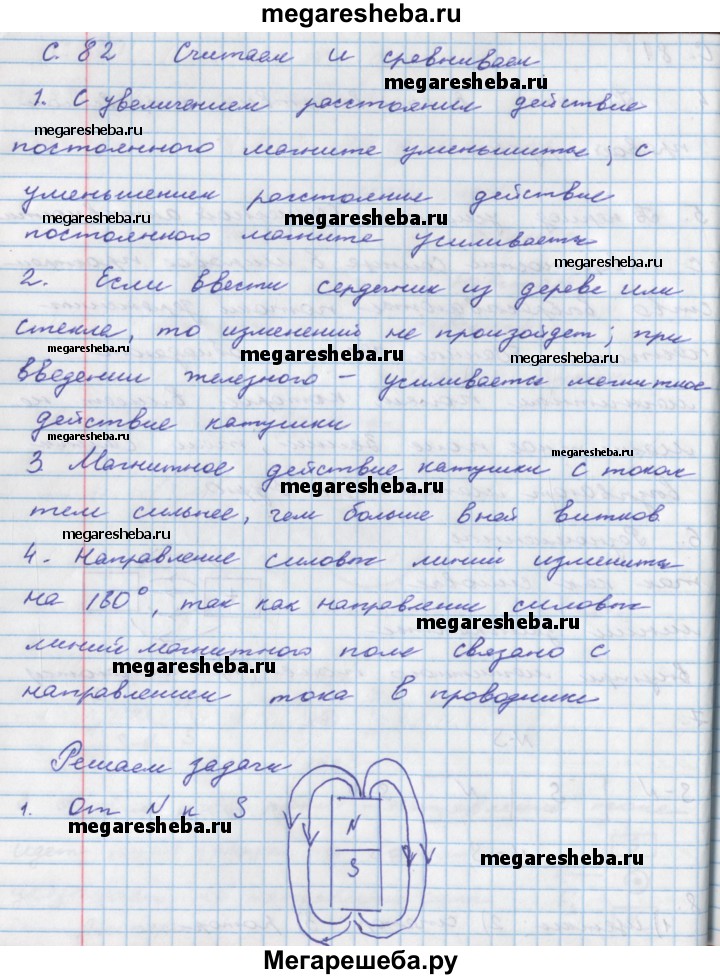 megaresheba.ru
С. 82 Считаем и сравниваем
megaresheba.ru
1. С увеличением расстояния действие
megaresheba.ru
постоянного магнита уменьшиться, с
уменьшением расстояние действие
megaresheba.ru megaresheba.ru
постоянного магнита усиливаеться
2. Если ввести сердечник из дерева или
стекла, то изменений не произойдет; при
megaresheba.ru megaresheba.ru megaresheba.ru
введении железного – усиливается магнитное
действие катушки
megaresheba.ru megaresheba.ru
3 Магнитное действие катушки с током
megaresheba.ru
тем сильнее, чем больше в ней витков
megaresheba.ru
4. Направление силовых линий измениться
на 180°, так как направлении силовых
megaresheba.ru
линий магнитного поле связано с
megaresheba.ru
направлением тока в проводнике
Решаем задачи
1. От N к S
megaresheba.ru
N
S
megaresheba.ru
Мегарешеба.ру